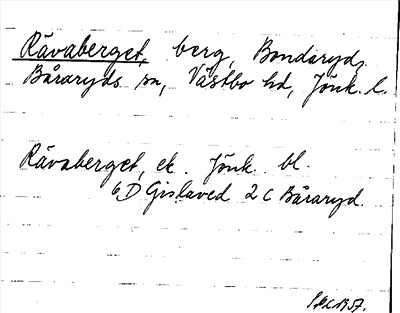 Rävaberget, berg, Bondaryd,
Båraryds sn, Västbo hd, Jönk. l.
Rävaberget, ek. Jönk. bl.
6D Gislaved 2 C Båraryd.
1957.